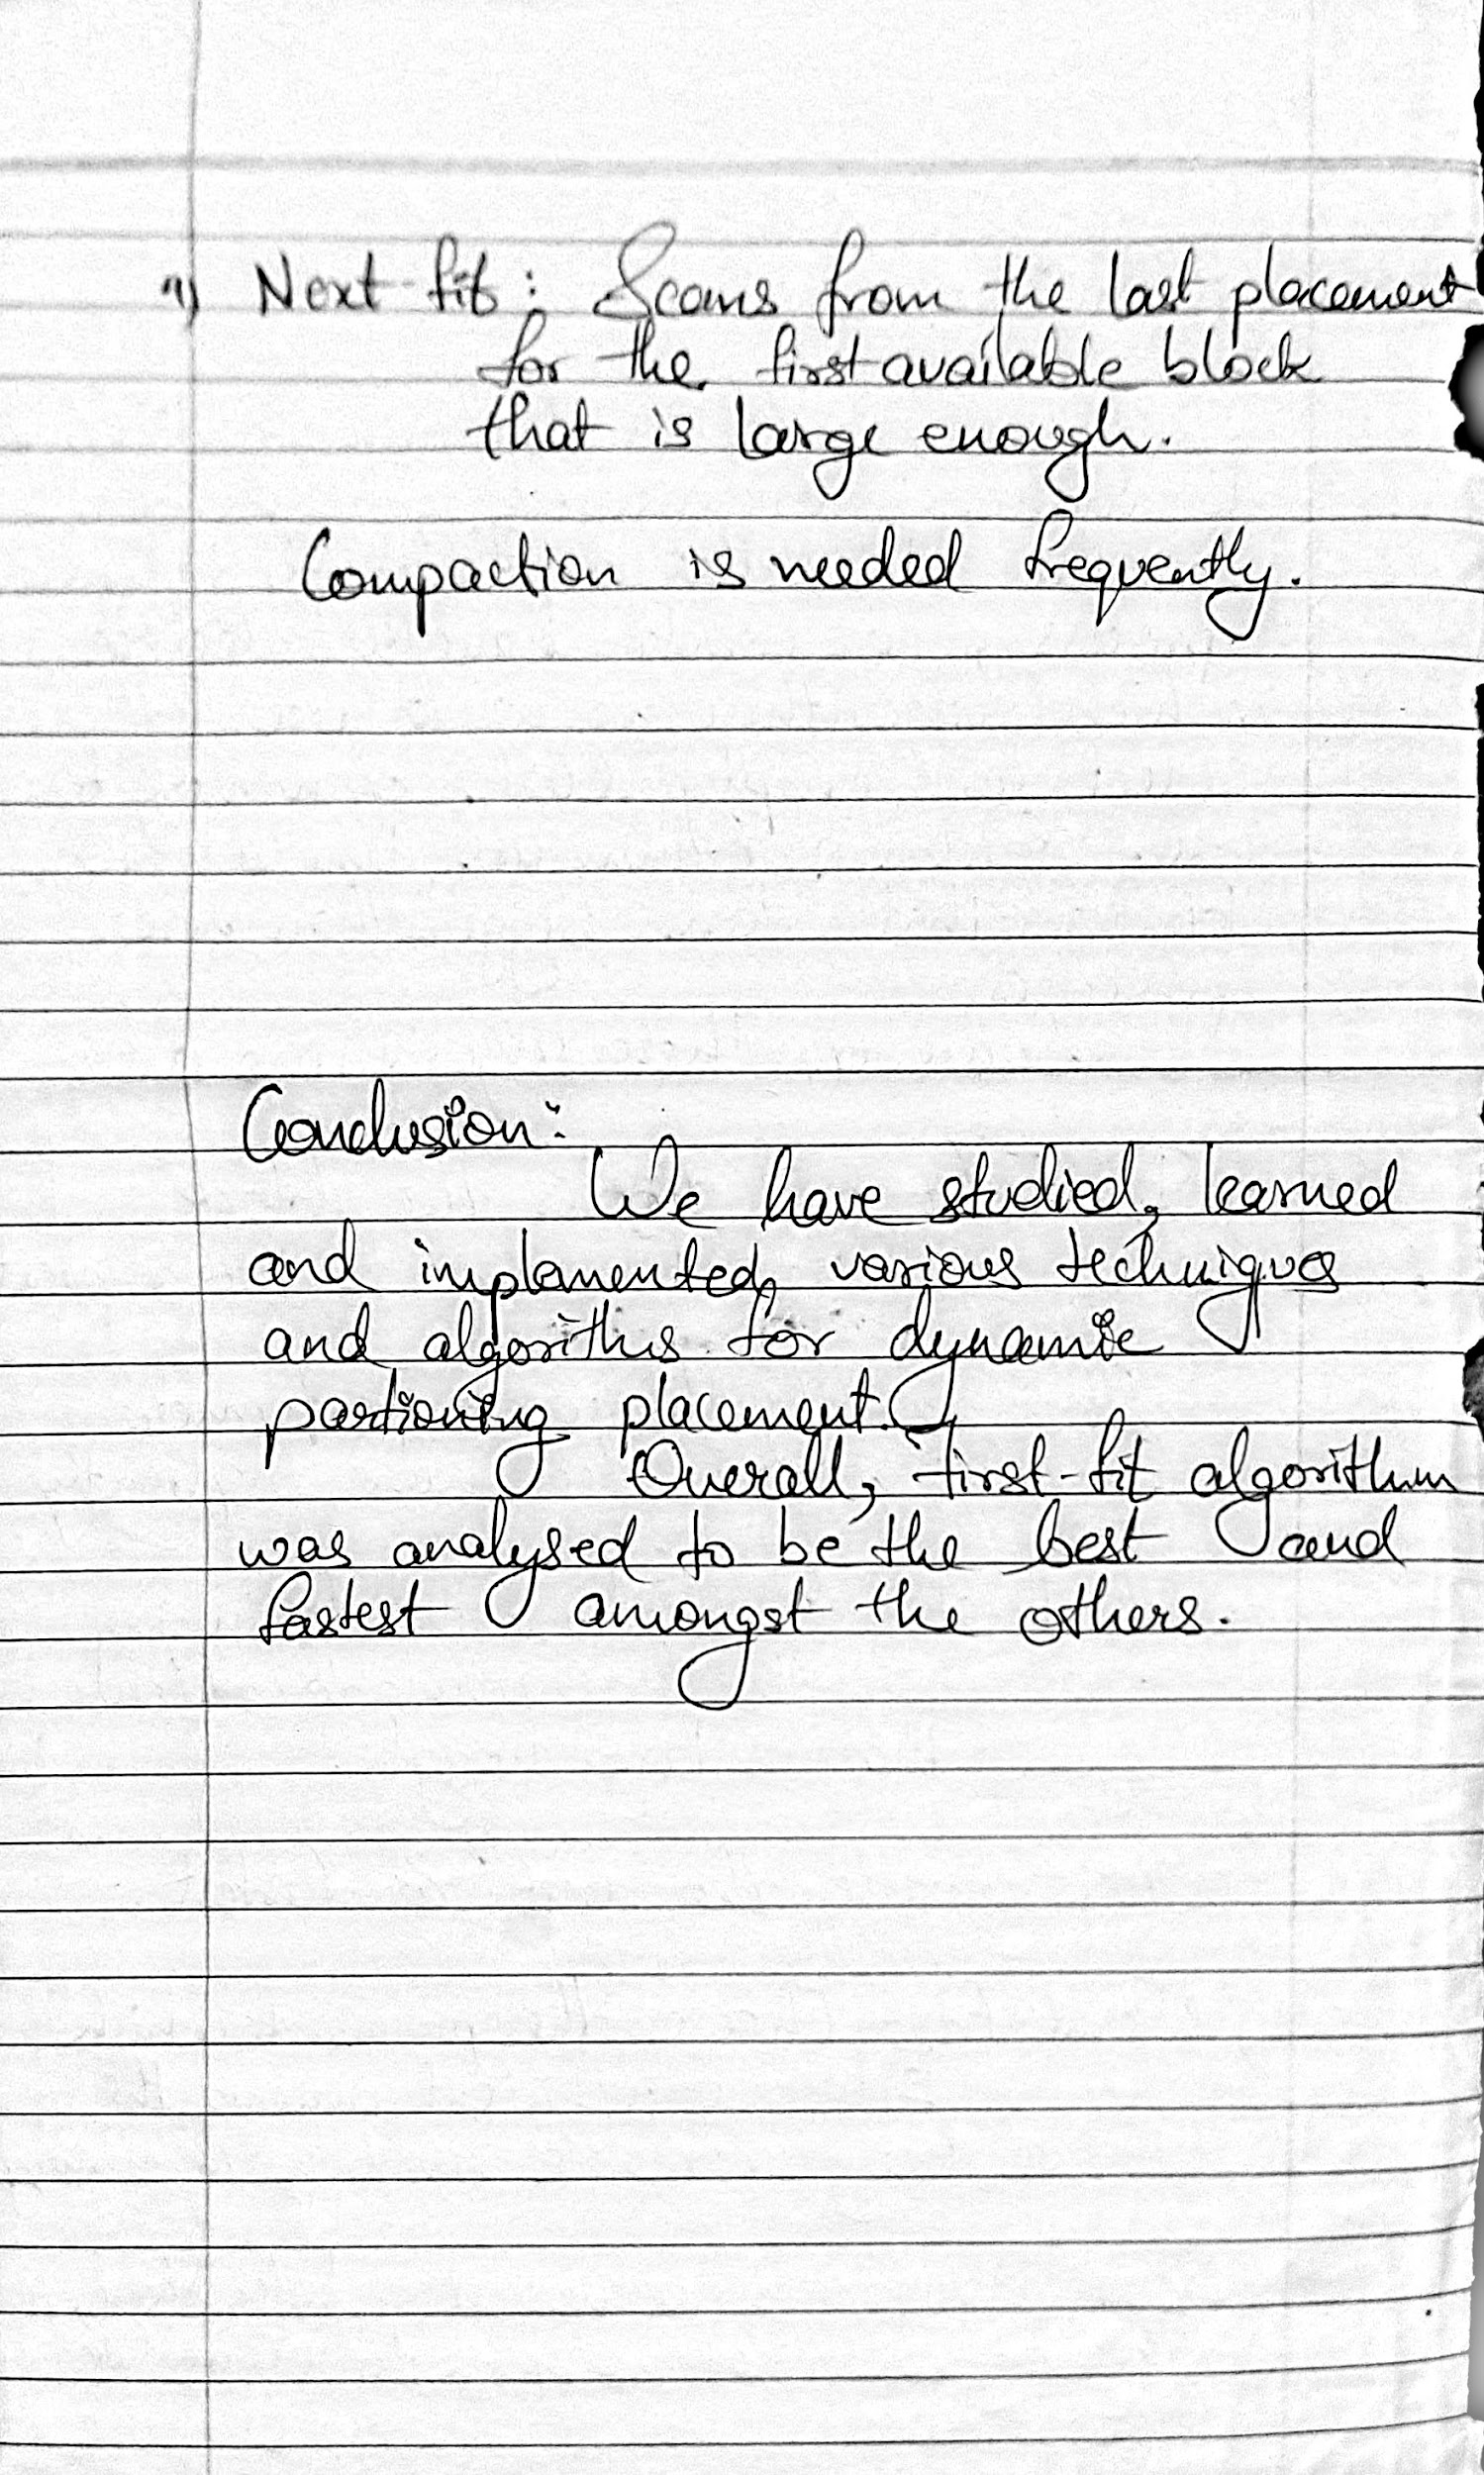 Next fit: Scans from the last placement
for the first available block
that is large enough.
Compaction is needed frequently.
Conclusion:
We have studied, learned
and implemented, various techniques
and algoriths for dynamic
partioning placement.
Overall, first-fit algorithm
was analysed to be the best and
fastest amongst the others.